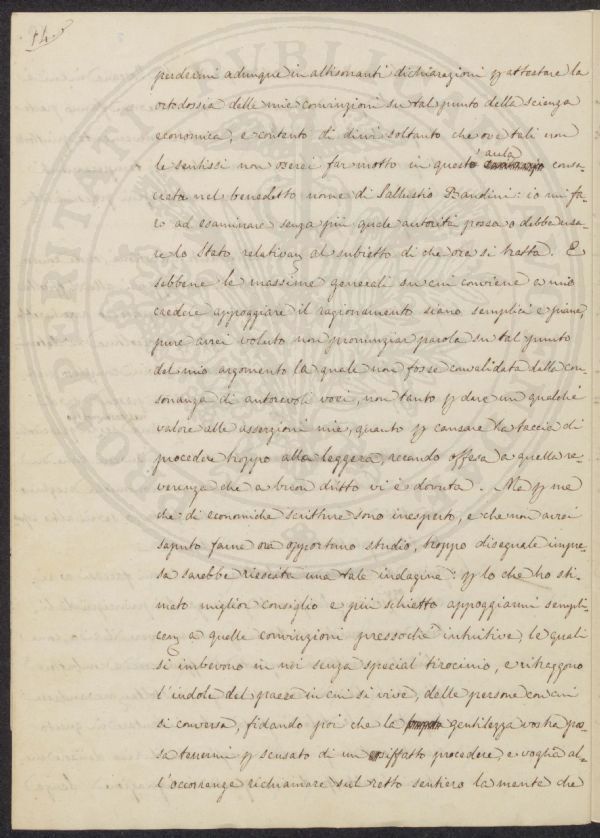 94.
perdermi adunque in altisonanti dichiarazioni p attestare la
ortodossia delle mie convinzioni su tal punto della scienza
economica, e contento di dirvi soltanto che ove tali non
le sentissi non oserei far motto in quest'aula consa-
crata nel benedetto nome di Sallustio Bandini: io mi fa-
rò ad esaminare senza più quale autorità possa o debba usa-
re lo Stato relativam al subietto di che ora si tratta. E
sebbene le massime generali su cui conviene a mio
credere appoggiare il ragionamento siano semplici e piane,
pure avrei voluto non pronunziar parola su tal punto
del mio argomento la quale non fosse convalidata dalla con-
sonanza di autorevoli voci, non tanto p dare un qualche
valore alle asserzioni mie, quanto p cansare la taccia di
procedere troppo alla leggera, recando offesa a quella re-
verenza che a buon dritto vi è dovuta. Ma p me
che di economiche scritture sono inesperto, e che non avrei
saputo farne ora opportuno studio, troppo diseguale impre-
sa sarebbe riescita una tale indagine: p lo che ho sti-
mato miglior consiglio e più schietto appoggiarmi sempli-
cem a quelle convinzioni pressoché intuitive, le quali
si imbevono in noi senza special tirocinio, e ritraggono
l'indole del paese in cui si vive, delle persone con cui
si conversa, fidando poi che la gentilezza vostra pos-
sa tenermi p scusato di un siffatto procedere, e voglia al-
l'occorrenza richiamare sul retto sentiero la mente che
PROSPERITATI PUBLICAE